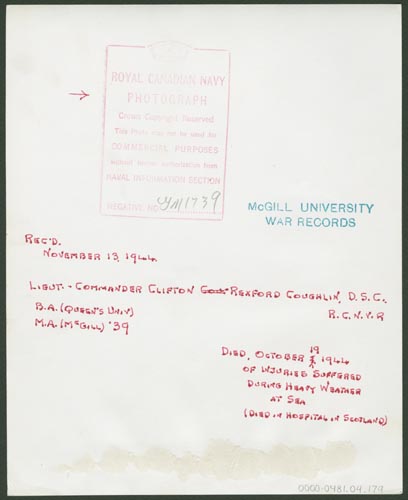 ROYAL CANADIAN NAVY
PHOTOGRAPH
Crown Copyright Reserved
This Photo may not be used for
COMMERCIAL PURPOSES
without former authorization from
NAVAL INFORMATION SECTION
NEGATIVE NO
McGILL UNIVERSITY
WAR RECORDS
REC'D.
NOVEMBER 13, 1944
LIEUT.-COMMANDER CLIFTON REXFORD COUGHLIN, D.S.C.
R.C.N.V.R
B.A. (QUEEN'S UNIV)
M.A. (McGILL) '39
19
DIED, OCTOBER 1944
OF INJURIES SUFFERED
DURING HEAVY WEATHER
AT SEA
(DIED IN HOSPITAL IN SCOTLAND)
0000-0481.04.179